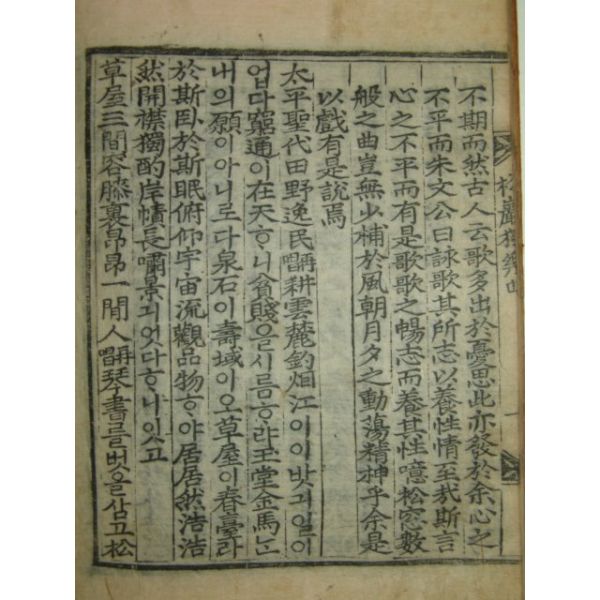 松巖獨樂曲
一
不期而然古人云歌多出於憂思此亦發於余心之
不平而朱文公曰詠歌其所志以養性情至哉斯言
心之不平而有是歌歌之暢志而養其性噫松窓數
般之曲豈無少補於風朝月夕之動蕩精神乎余是
以戱有是說焉
太平聖代田野逸民再唱耕雲麓釣烟江이이밧긔일이
업다窮通이在天ᄒᆞ니貧賤을시름ᄒᆞ랴玉堂金馬ᄂᆞᆫ
내의願이아니로다泉石이壽域이오草屋이春臺라
於斯臥於斯眠俯仰宇宙流觀品物ᄒᆞ야居居然浩浩
然開襟獨酌岸幘長嘯景긔엇다ᄒᆞ니잇고
草屋三間容膝裏昻昻一閒人再唱琴書를벗을삼고松